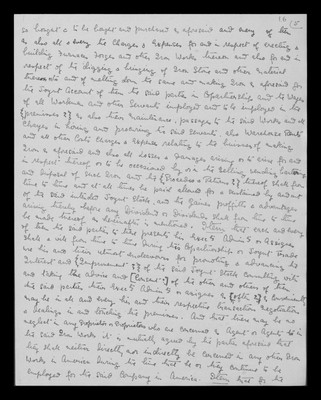 so bought & to be bought and purchased as aforesaid and every of them
as also all & every the Charges & Expences for and in respect of erecting &
building Furnaces Forges and other Iron Works thereon and also for and in
respect of the digging & bringing of Iron Stone and other material
thereunto and of melting down the same and making Iron as aforesaid for
the Joynt Account of them the said partys in Copartnership and the Wages
of all Workmen and other Servants employed and to be employed in the
[premises ?] as also their maintenance, passages to the said Works and all
Charges in hiring and procuring the said Servants, also Warehouse Rents
and all other Costs Charges & Expences relating to the business of making
Iron as aforesaid and also all losses & Damages arising or to arise for and
in respect thereof or to be occasioned by or in the selling vending bartering
and disposal of such Iron and the [ ?] thereof shall from
time to time and at all times be paid allowed for & sustained by and out
of the said intended Joynt Stock, and the Gaines proffitts & advantages
arising thereby before any Dividend or Dividends shall from time to time
be made thereof as hereinafter is mentioned. Item that each and every
of them the said partys to these presents their Exors Admrs or Assignes
shall & will from time to time during this Copartnership or Joynt Trade
use his and their utmost endeavours for promoting & advancing the
Interest and [Improvement ?] of the said Joynt Stock consulting with
and taking the advice and [Consent ?] of the other and others of them
the said partys their Exors Admrs or assignes as [often ?] as conveniently
may be in all and every his and their respective transaction negotiation
& dealings in and touching the premises. And that there may be no
neglect in any Proprietor or Proprietors who are concerned as Agent or Agents in
the said Iron Works it is mutually agreed by the partys aforesaid that
they shall neither directly nor indirectly be concerned in any other Iron
Works in America during the time that he or they continue to be
employed for the said Company in America. Item that for the